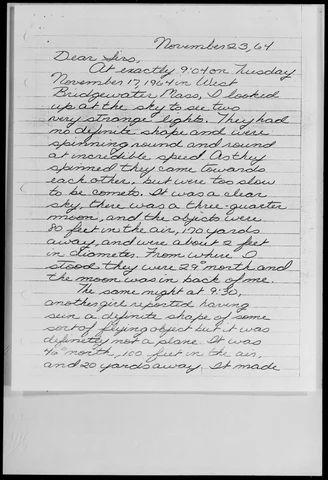 November 23, 64
Dear Sirs,
At exactly 9:04 on Tuesday
November 17, 1964 in West
Bridgewater Mass, I looked
up at the sky to see two
very strange lights. They had
no definite shape and were
spinning round and round
at incredible speed. As they
spinned they came towards
each other, but were too slow
to be comets. It was a clear
sky, there was a three-quarter
moon, and the objects were
80 feet in the air, 170 yards
away, and were about 2 feet
in diameter. From where I
stood they were 29° north and
the moon was in back of me.
The same night at 9:30,
another girl reported having
seen a definite shape of some
sort of flying object but it was
definetly not a plane. It was
46° north, 100 feet in the air,
and 20 yards away. It made